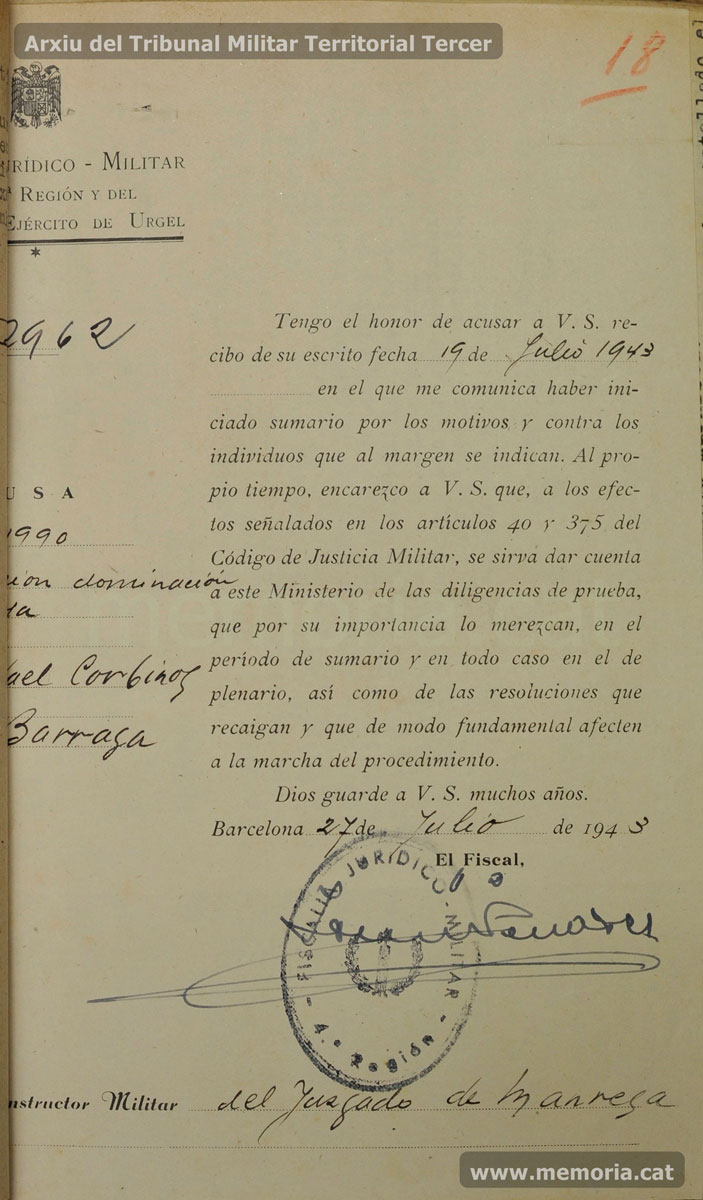 Arxiu del Tribunal Militar Territorial Tercer
18
RÍDICO - MILITAR
REGIÓN Y DEL
EJÉRCITO DE URGEL
2962
Tengo el honor de acusar a V. S. re-
cibo de su escrito fecha 19 de Julio 1943
en el que me comunica haber ini-
ciado sumario por los motivos y contra los
individuos que al margen se indican. Al pro-
pio tiempo, encarezco a V. S. que, a los efec-
tos señalados en los artículos 40 y 375 del
Código de Justicia Militar, se sirva dar cuenta
a este Ministerio de las diligencias de prueba,
que por su importancia lo merezcan, en el
período de sumario y en todo caso en el de
plenario, así como de las resoluciones que
recaigan y que de modo fundamental afecten
a la marcha del procedimiento.
Dios guarde a V. S. muchos años.
Barcelona 27 de Julio de 1943
El Fiscal,
U S A
1990
ion dominación
da
ael Corbinos
Barraga
FISCALIA JURÍDICO-MILITAR
- 4.ª Región -
nstructor Militar del Juzgado de Manresa
www.memoria.cat